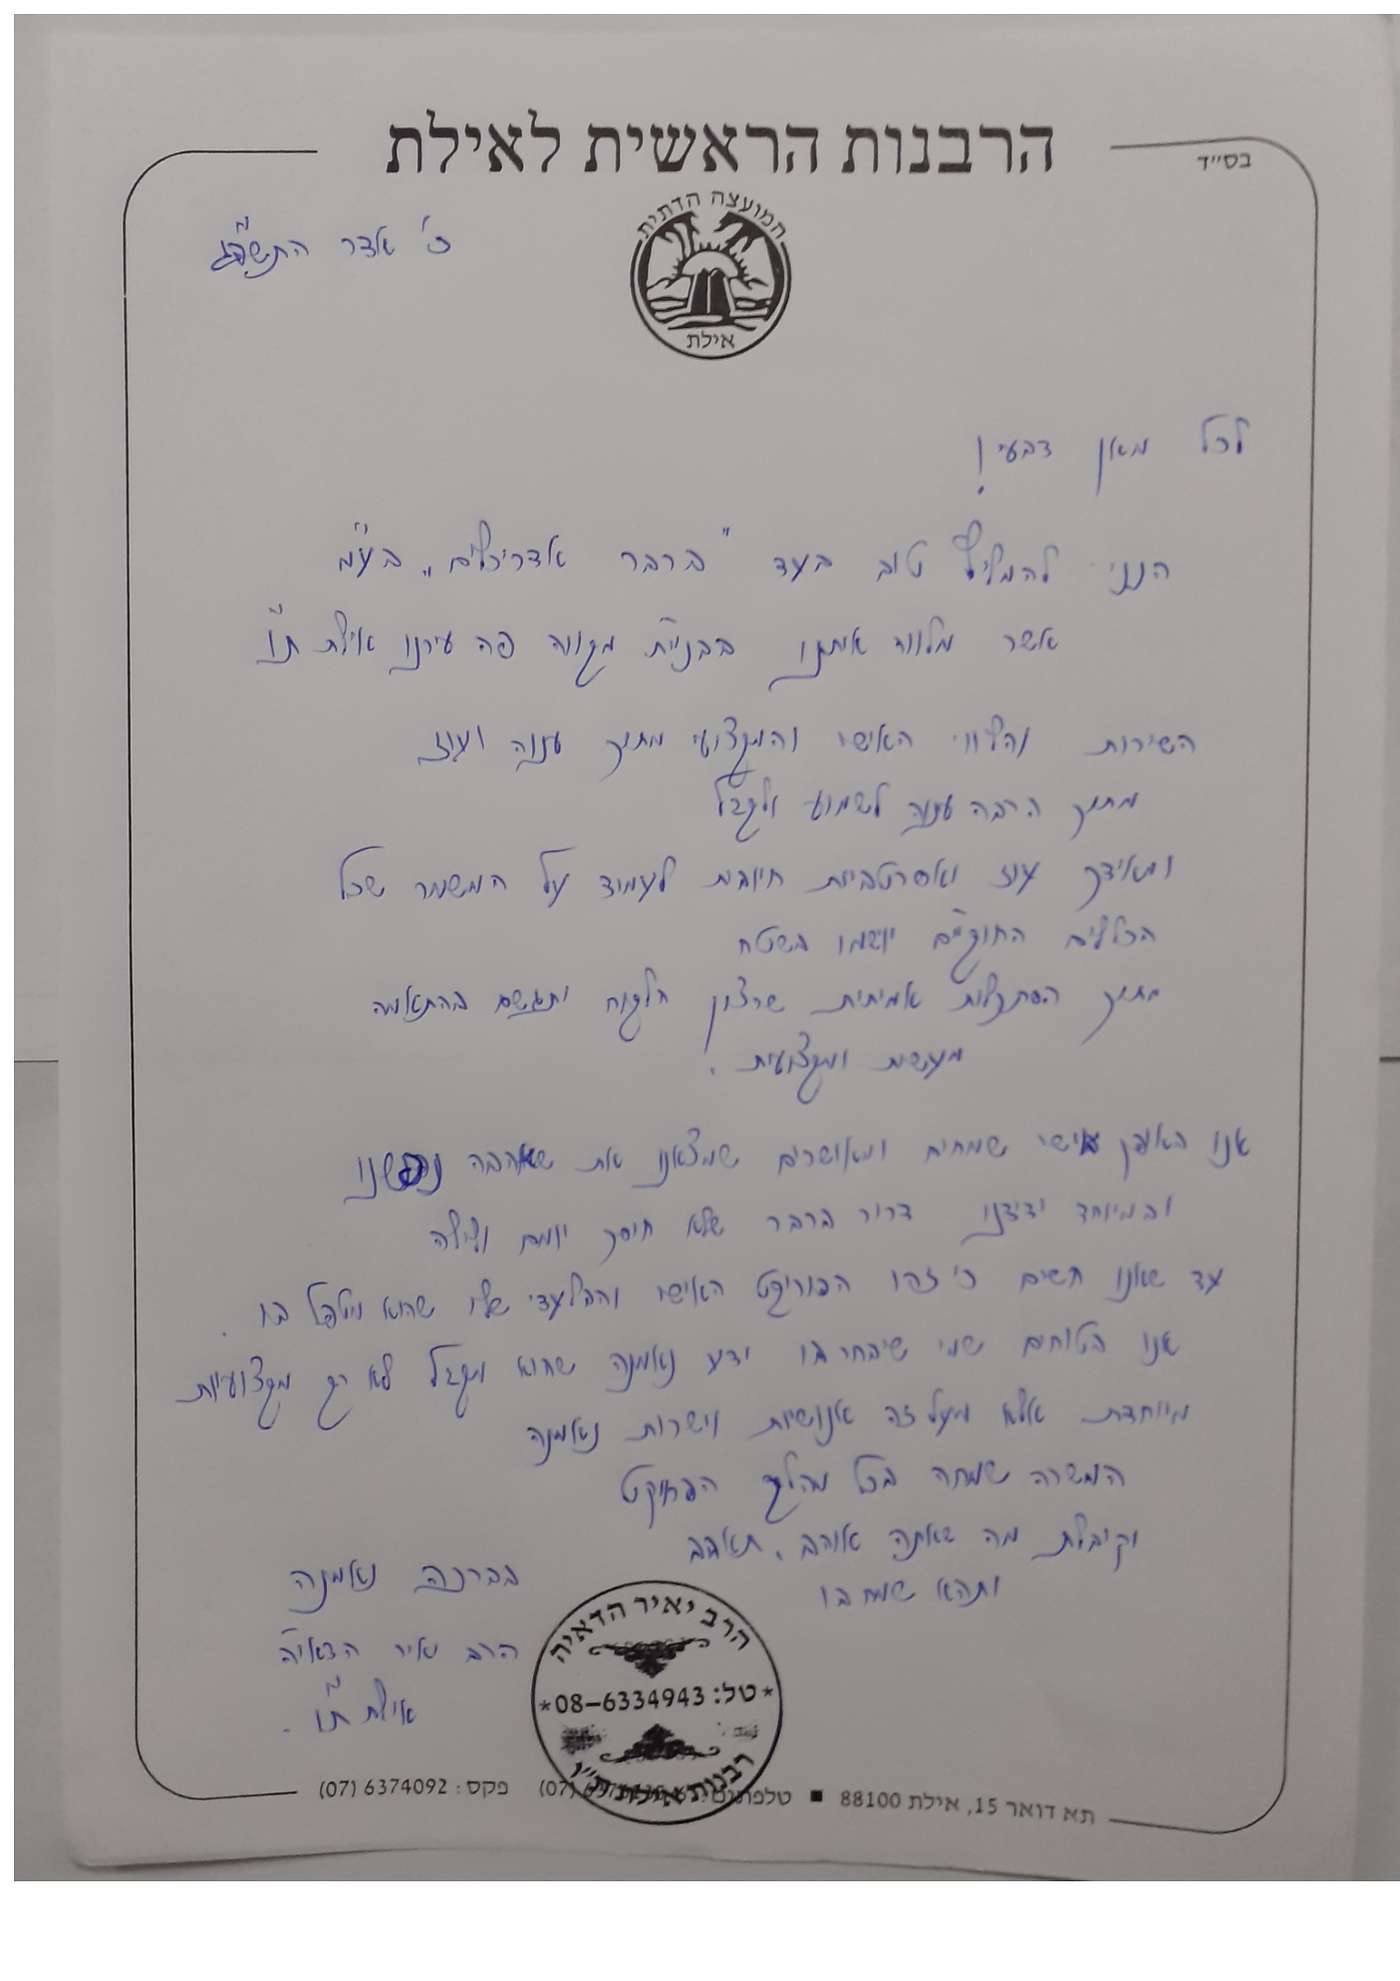 בס״ד
הרבנות הראשית לאילת
המועצה הדתית
אילת
כ' אדר התשפ"ג
לכל מאן דבעי!
הנני להמליץ טוב בעד "ברבר אדריכלים" בע"מ
אשר מלווה איתנו בבניית מקווה פה עירנו אילת ת"ו
השירות והליווי האישי והמקצועי מתוך ענוה ועוז
מתוך הרבה ענוה לשמוע ולקבל
ומאידך עוז ואסרטביות חיובית לעמוד על המשמר שכל
הכללים החוקיים יושמו בשטח
מתוך הסתכלות אמיתית שרצון הלקוח יתגשם בהתאמה
מעשית ומקצועית.
אנו באופן אישי שמחים ומאושרים שמצאנו את שאהבה נפשנו
ובמיוחד ידידנו דרור ברבר שלא חוסך יומם ולילה
עד שאנו חשים כי זהו הפרויקט האישי והבלעדי שלו שהוא מטפל בו.
אנו בטוחים שמי שיבחר בו ידע נאמנה שהוא מקבל לא רק מקצועיות
מיוחדת אלא מעל זה אנושיות וישרות נאמנה
המשרה שמחה בכל מהלך הפרויקט
וקיבלת מה שאתה אוהב.
ותהא שמח בו
בברכה נאמנה
הרב יאיר הדאיה
אילת ת"ו.
הרב יאיר הדאיה
*טל: 08-6334943*
רבנות אילת ת״ו
תא דואר 15, אילת 88100 ■ טלפונים: (07) פקס: 6374092 (07)